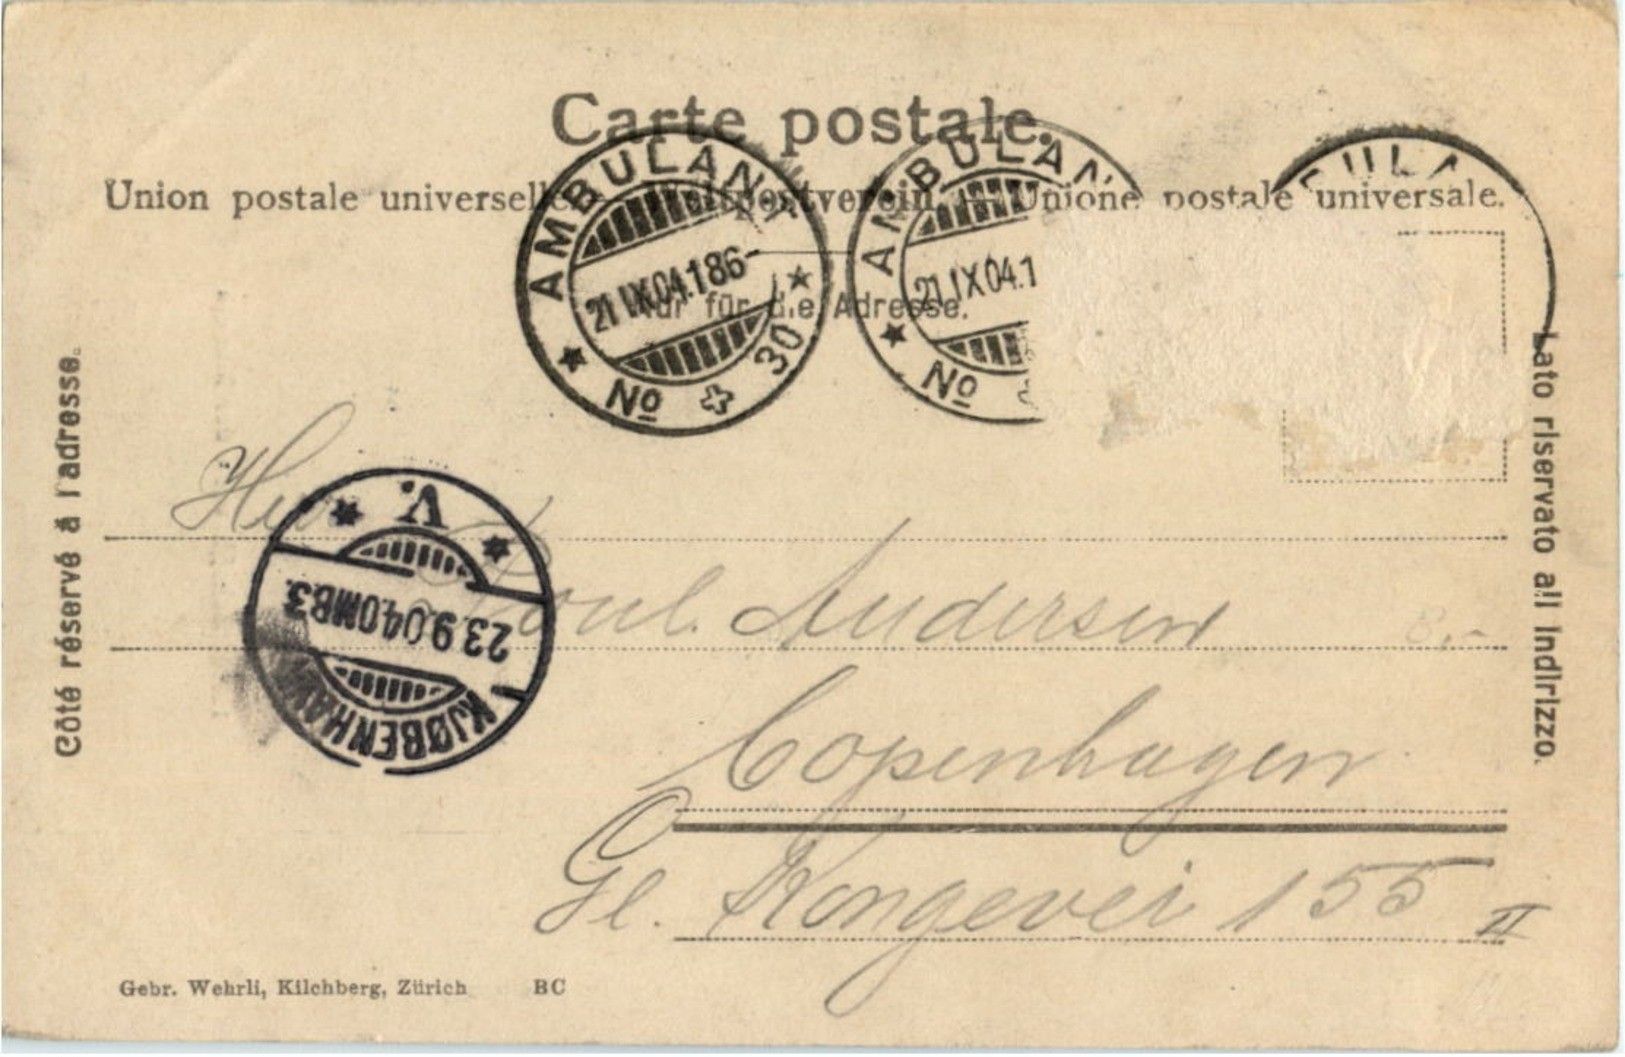 Carte postale.
Union postale universelle. Weltpostverein. Unione postale universale.
AMBULANT
21 IX 04.186-
No 30
AMBULAN
21 IX 04.1
No
BULA
Nur für die Adresse.
Côté réservé à l'adresse.
Lato riservato all indirizzo.
V.
23.9.04.0MB3.
KJØBENHAV
Poul. Andersen
Copenhagen
Gl. Kongevei 155 II
Gebr. Wehrli, Kilchberg, Zürich BC